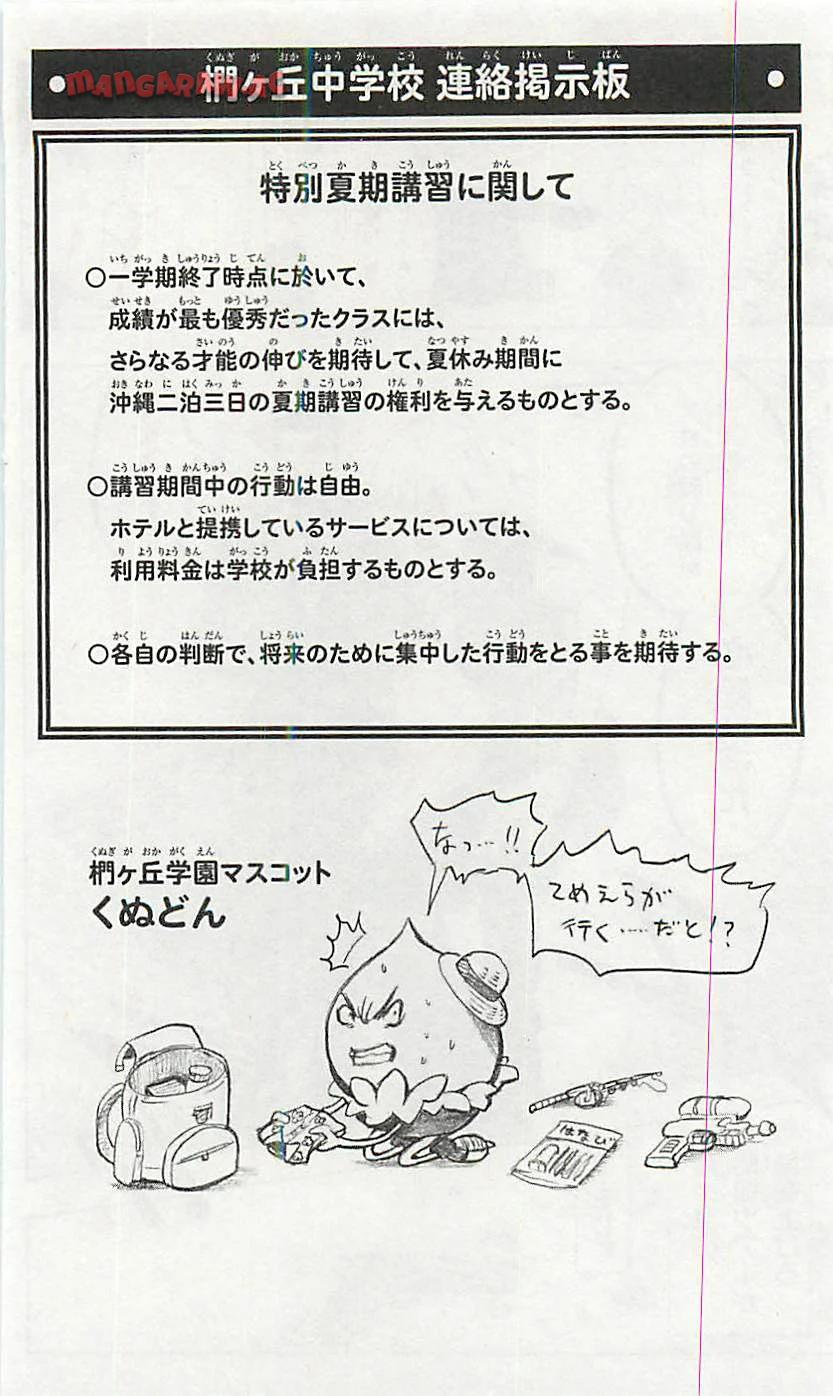 椚ヶ丘中学校 連絡掲示板
特別夏期講習に関して
○一学期終了時点に於いて、
成績が最も優秀だったクラスには、
さらなる才能の伸びを期待して、夏休み期間に
沖縄二泊三日の夏期講習の権利を与えるものとする。
○講習期間中の行動は自由。
ホテルと提携しているサービスについては、
利用料金は学校が負担するものとする。
○各自の判断で、将来のために集中した行動をとる事を期待する。
なっ…!!
てめえらが
行く……だと!?
椚ヶ丘学園マスコット
くぬどん
はなび